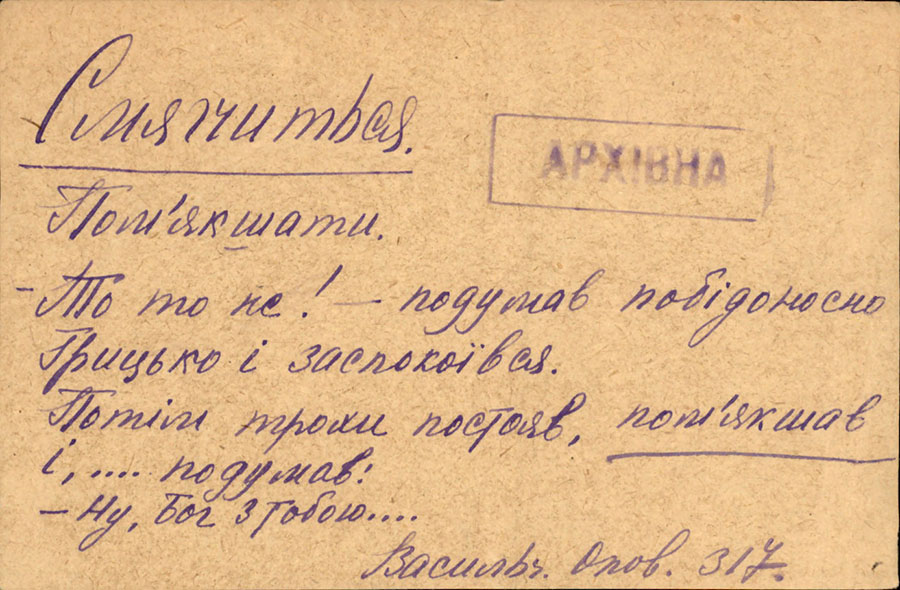 Смягчиться.
АРХІВНА
Пом'якшати.
- То то нє! — подумав побідоносно
Грицько і заспокоївся.
Потім трохи постояв, пом'якшав
і, .... подумав:
- Ну, Бог з тобою....
Васильч. Опов. 317.